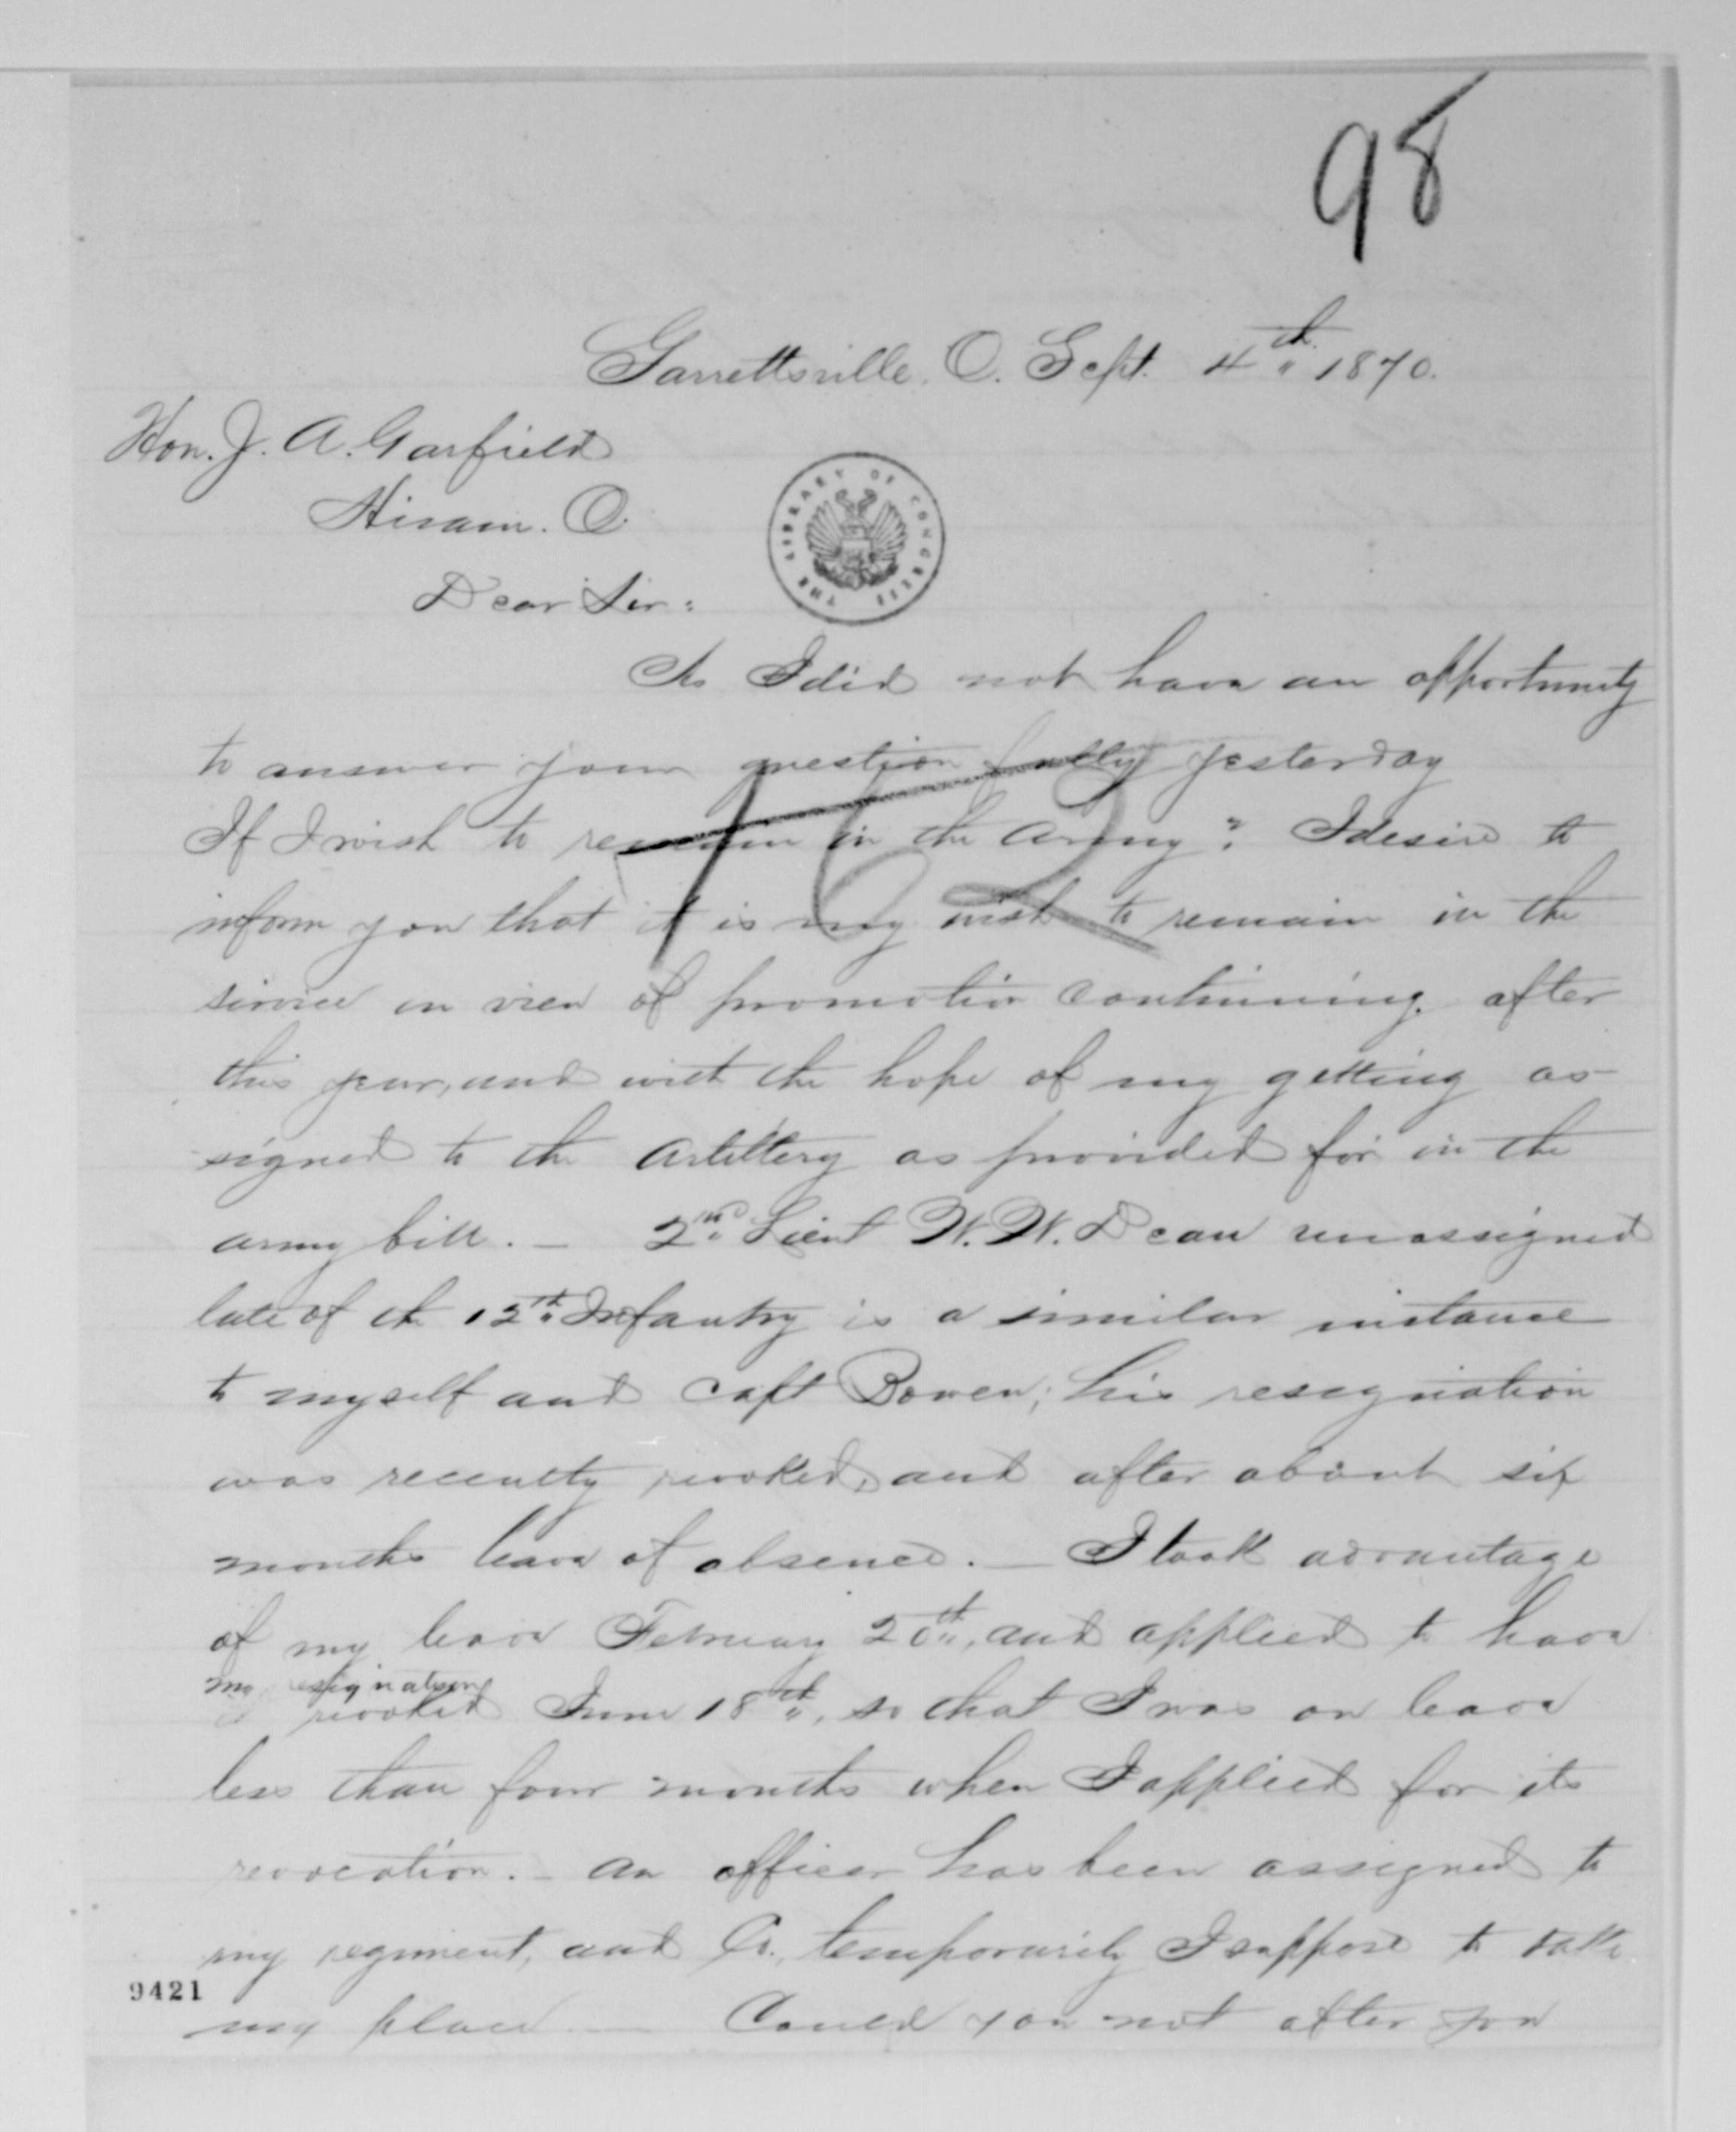 98
Garrettsville, O. Sept. 4th 1870.
Hon. J. A. Garfield
Hiram. O.
THE LIBRARY OF CONGRESS
Dear Sir:
As I did not have an opportunity
to answer your question fully yesterday
162
If I wish to remain in the army? I desire to
inform you that it is my wish to remain in the
service in view of promotion continuing after
this year, and with the hope of my getting as-
signed to the artillery as provided for in the
army bill. — 2nd Lieut W. W. Dean unassigned
late of the 12th Infantry is a similar instance
to myself and Capt Bowen; his resignation
was recently revoked, and after about six
months leave of absence. — I took advantage
of my leave February 20th, and applied to have
my resignation
revoked June 18th, so that I was on leave
less than four months when I applied for its
revocation. – An officer has been assigned to
my regiment, and Co., temporarily I suppose to take
9421
my place — Could you not after you